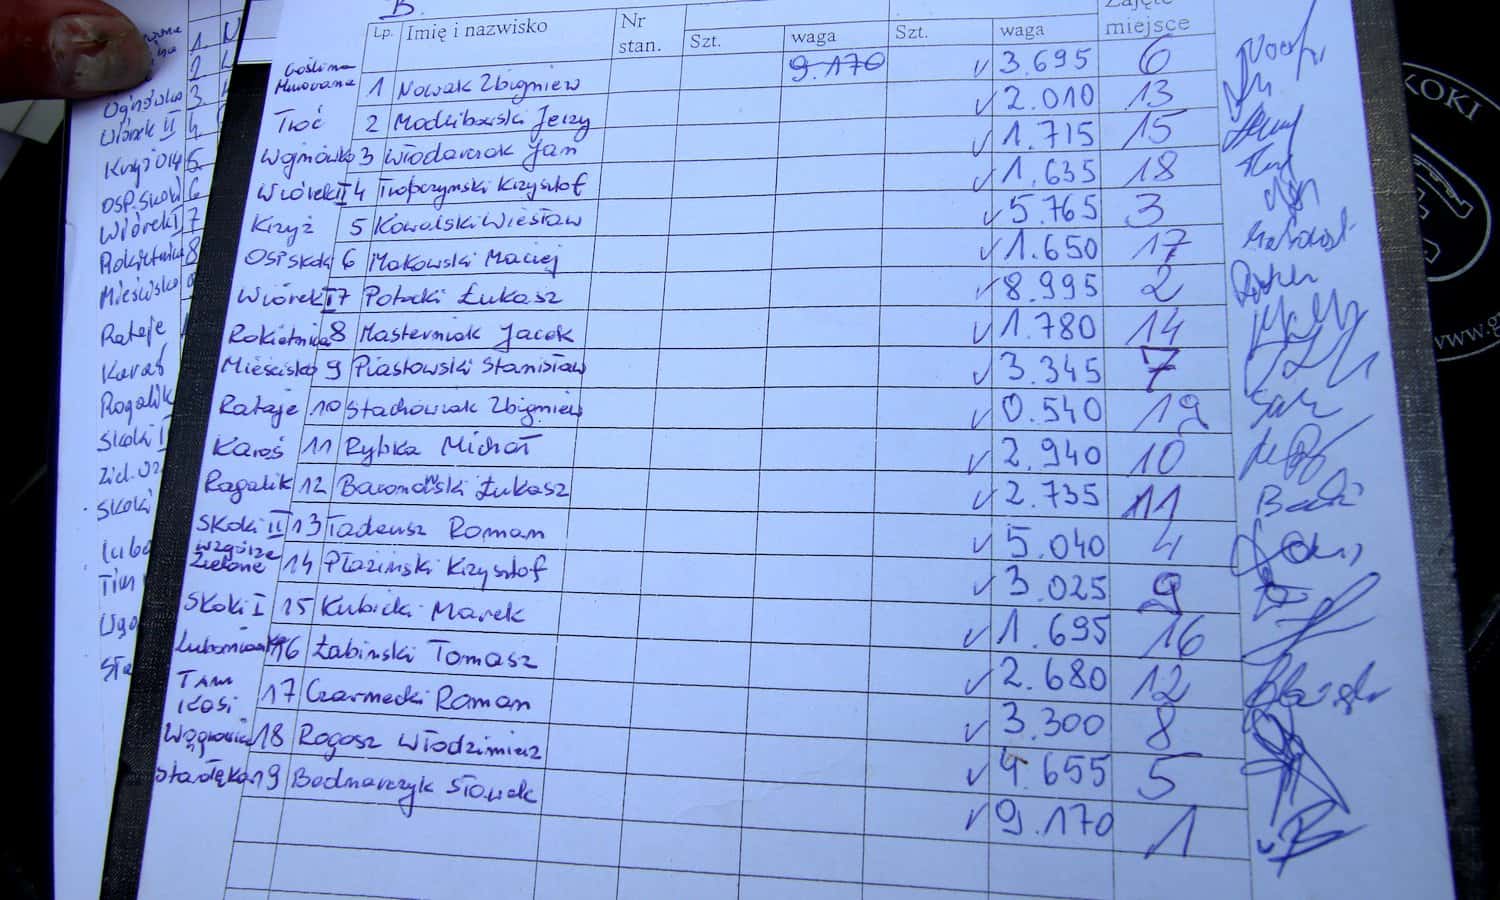 B.
Lp. Imię i nazwisko Nr stan. Szt. waga Szt. waga Zajęte miejsce
9.170
Goślina Murowana 1 Nowak Zbigniew √ 3.695 6
Troć 2 Modlibowski Jerzy √ 2.010 13
Wojnówko 3 Włodarczak Jan √ 1.715 15
Wiórek II 4 Tropczymski Krzysztof √ 1.635 18
Krzyż 5 Kowalski Wiesław √ 5.765 3
OSP Skoki 6 Makowski Maciej √ 1.650 17
Wiórek I 7 Potocki Łukasz √ 8.995 2
Rokietnica 8 Masterniak Jacek √ 1.780 14
Mieścisko 9 Piastowski Stanisław √ 3.345 7
Rataje 10 Stachowiak Zbigniew √ 0.540 19
Karaś 11 Rybka Michał √ 2.940 10
Rogalik 12 Baranowski Łukasz √ 2.735 11
Skoki II 13 Tadeusz Roman √ 5.040 4
Wzgórze Zielone 14 Płaziński Krzysztof √ 3.025 9
Skoki I 15 Kubicki Marek √ 1.695 16
16 Łabinski Tomasz √ 2.680 12
17 Czarnecki Roman √ 3.300 8
18 Rogosz Włodzimierz √ 4.655 5
19 Bednarczyk Sławek √ 9.170 1
1. N
2
Ogórówko 3
Wiórek II 4
Krzyż 5
OSP Skoki 6
Wiórek I 7
Rokietnica 8
Mieścisko 9
Rataje
Karaś
Rogalik
Skoki I
Skoki
KOKI
www.g